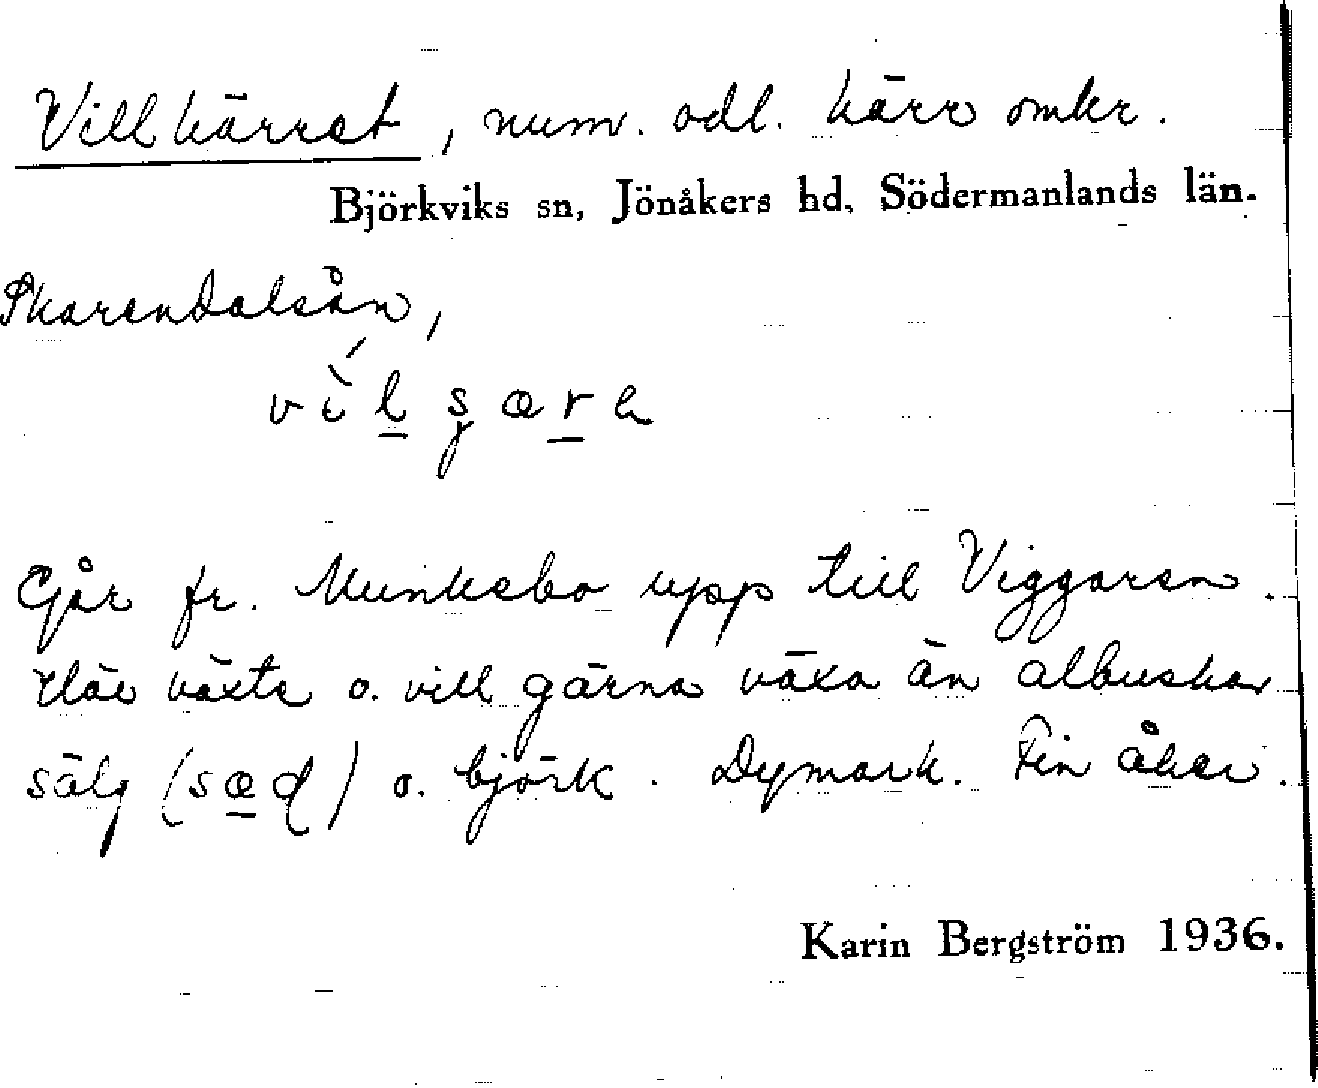 Villkärret, num. odl. kärr omkr.
Björkviks sn, Jönåkers hd, Södermanlands län.
Skarendalsån,
Går fr. Munkebo upp till Viggaren.
Här växte o. vill gärna växa än albuskar
sälg (sæɖ) o. björk. Dymark. Fin åker.
Karin Bergström 1936.